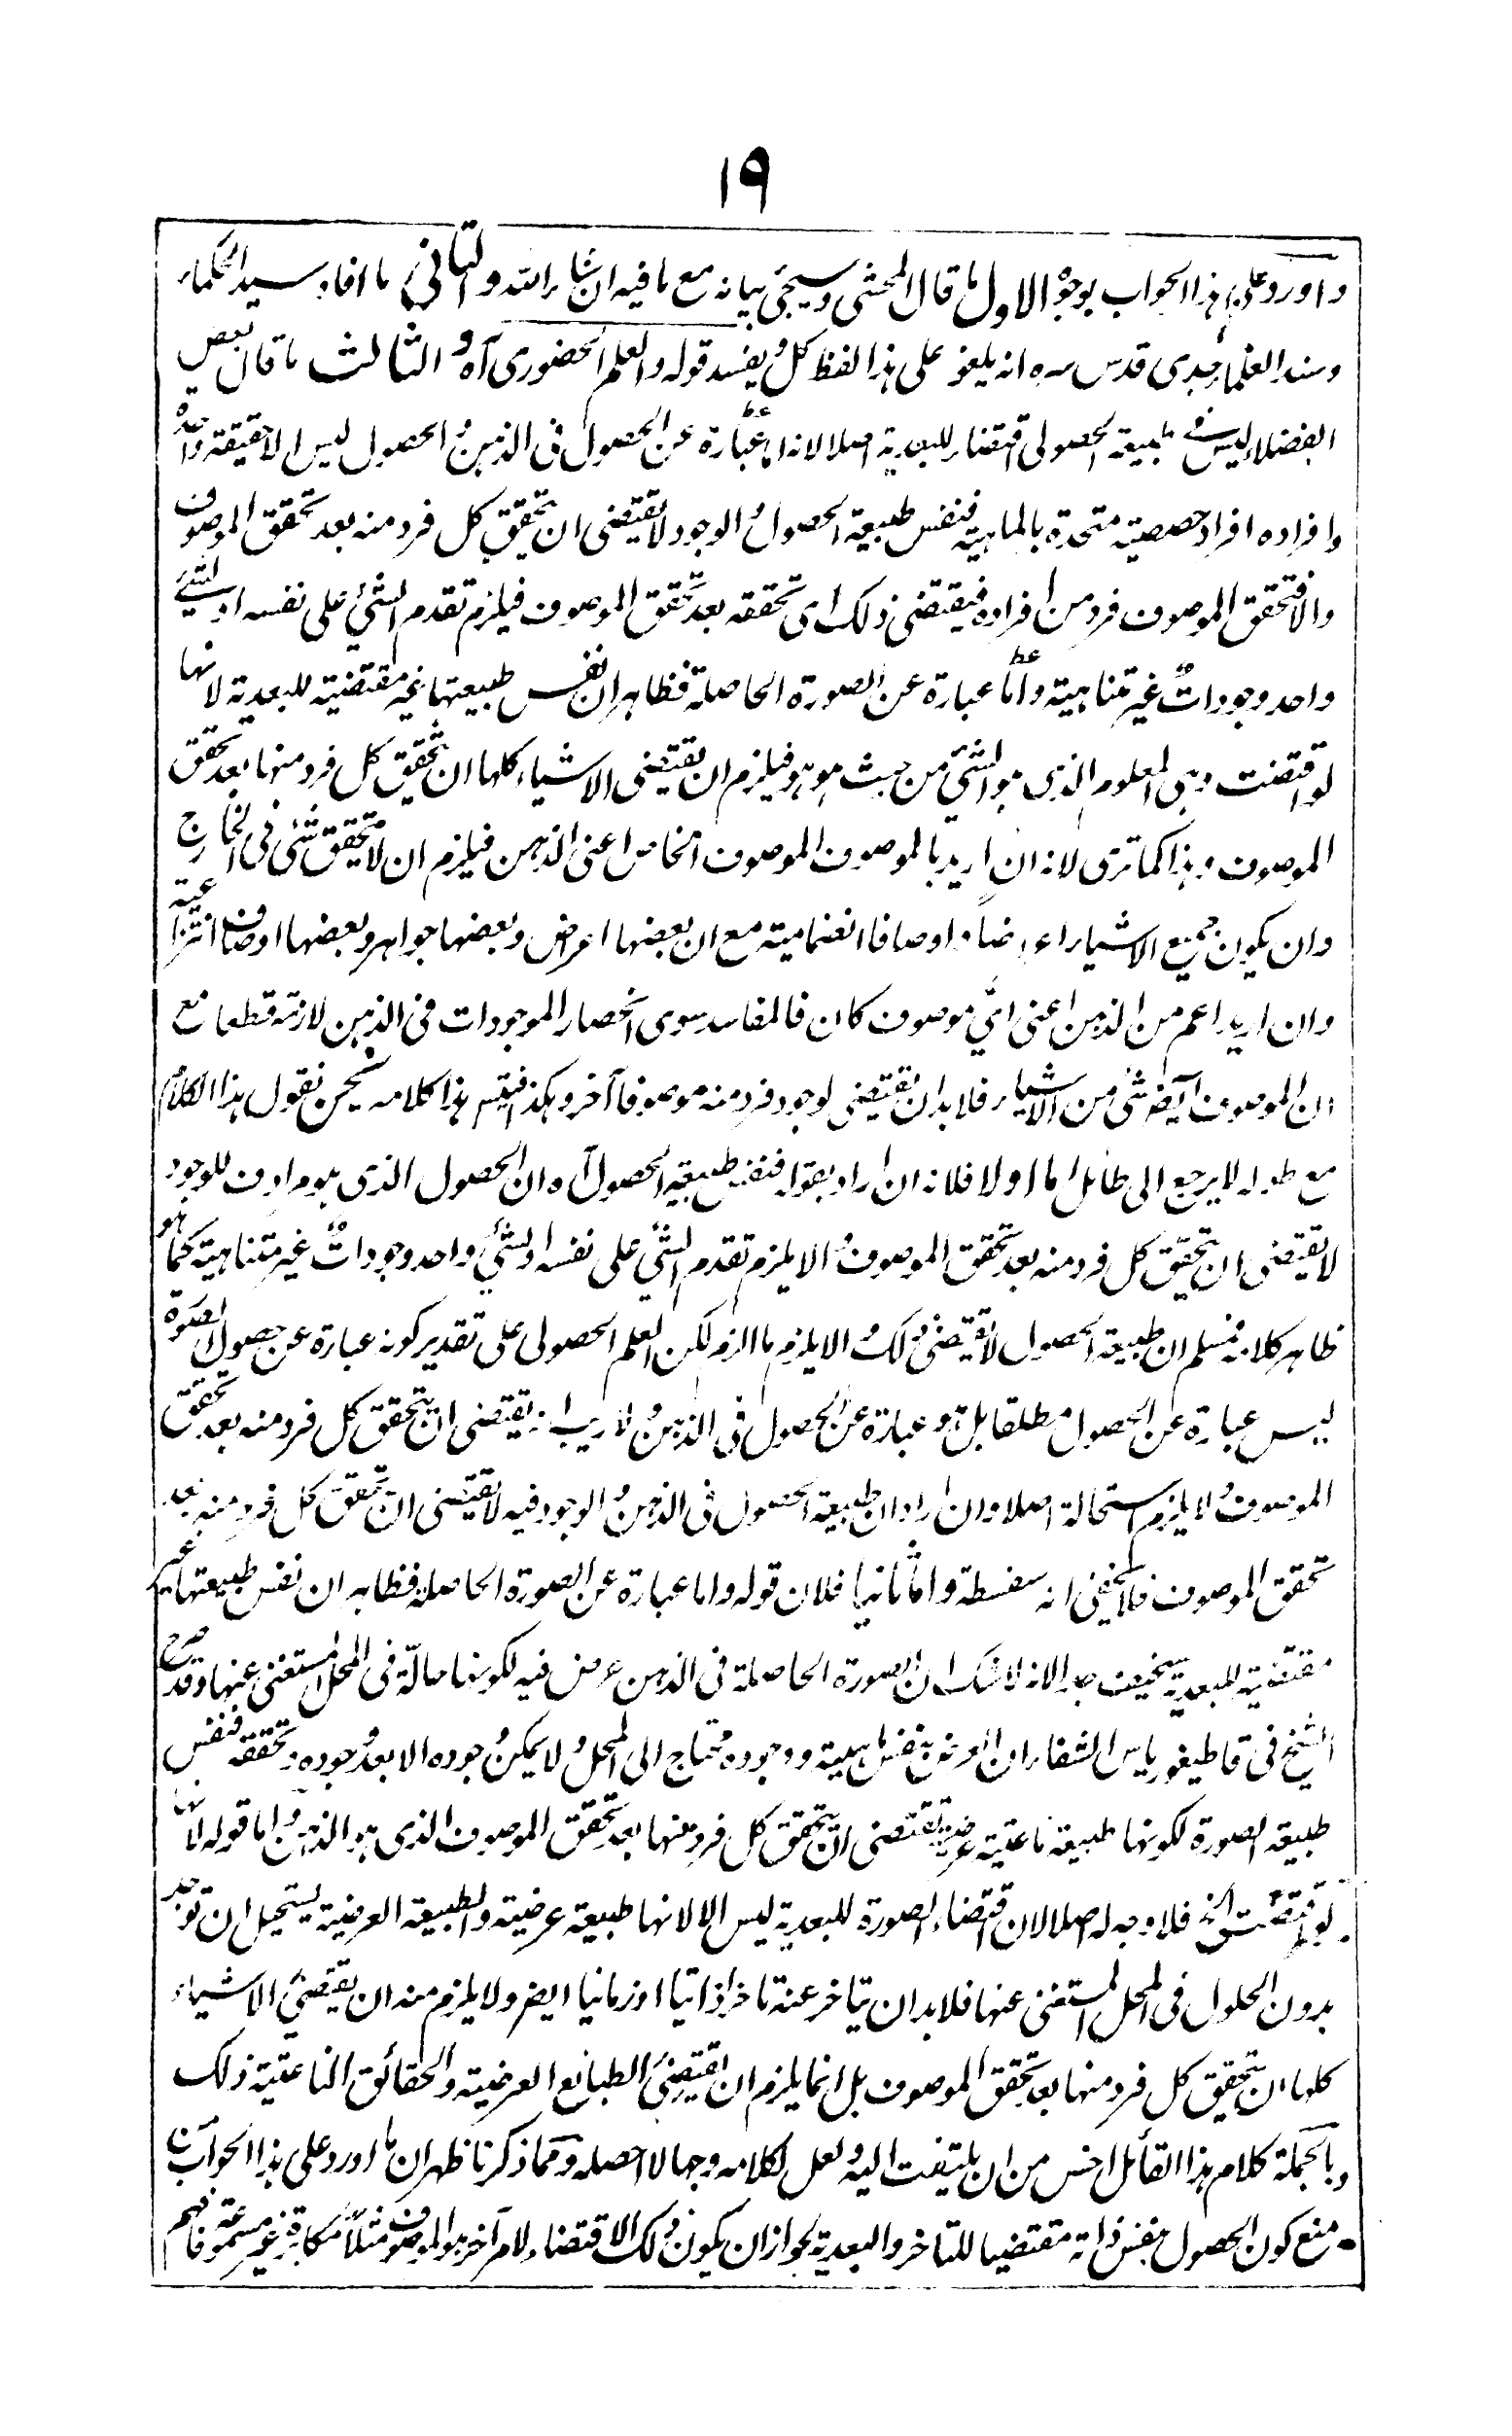 ١٩
واورد على هذا الجواب بوجوه الاول ما قال المحشى وسيجئ بيانه مع ما فيه ان شاء الله والثانى ما افاد سيد الحكماء
وسند العلماء جدى قدس سره انه يلغو على هذا لفظ كل ويفسد قوله والعلم الحضورى آه والثالث ما قال بعض
الفضلاء ليس فى طبيعة الحصولى اقتضاء للبعدية اصلا لانه اما عبارة عن الحصول فى الذهن والحصول ليس الا حقيقة واحدة
وافراده افراد حصصية متحدة بالماهية فنفس طبيعة الحصول والوجود لا يقتضى ان يتحقق كل فرد منه بعد تحقق الموصوف
والا فتحقق الموصوف فرد من افراده فيقتضى ذلك اى تحققه بعد تحقق الموصوف فيلزم تقدم الشئ على نفسه او لشئ
واحد وجودات غير متناهية واما عبارة عن الصورة الحاصلة فظاهر ان نفس طبيعتها غير مقتضية للبعدية لانها
لو اقتضت وهى المعلوم الذى هو الشئ من حيث هو هو فيلزم ان يقتضى الاشياء كلها ان يتحقق كل فرد منها بعد تحقق
الموصوف وهذا كما ترى لانه ان اريد بالموصوف الموصوف الخاص اعنى الذهن فيلزم ان لا يتحقق شئ فى الخارج
وان يكون جميع الاشياء اعراضا واوصافا انضمامية مع ان بعضها اعراض وبعضها جواهر وبعضها اوصاف انتزاعية
وان اريد اعم من الذهن اعنى اى موصوف كان فالمفاسد سوى انحصار الموجودات فى الذهن لازمة قطعا مع
ان الموصوف ايضا شئ من الاشياء فلا بد ان يقتضى لوجود فرد منه موصوفا آخر وهكذا فيتم هذا كلامه نحن نقول هذا الكلام
مع طوله لا يرجع الى طائل اما اولا فلانه ان اراد بقوله فنفس طبيعة الحصول آه ان الحصول الذى هو مرادف للوجود
لا يقتضى ان يتحقق كل فرد منه بعد تحقق الموصوف والا يلزم تقدم الشئ على نفسه او لشئ واحد وجودات غير متناهية كما هو
ظاهر كلامه فمسلم ان طبيعة الحصول لا تقتضى ذلك والا يلزم ما الزم لكن العلم الحصولى على تقدير كونه عبارة عن حصول الصورة
ليس عبارة عن الحصول مطلقا بل هو عبارة عن الحصول فى الذهن ولا ريب انه يقتضى ان يتحقق كل فرد منه بعد تحقق
الموصوف ولا يلزم استحالة اصلا وان اراد ان طبيعة الحصول فى الذهن والوجود فيه لا تقتضى ان تحقق كل فرد منه بعد
تحقق الموصوف فلا يخفى انه سفسطة واما ثانيا فلان قوله واما عبارة عن الصورة الحاصلة فظاهر ان نفس طبيعتها غير
مقتضية للبعدية سخيف جدا لانه لا شك ان الصورة الحاصلة فى الذهن عرض فيه لكونها حالة فى المحل المستغنى عنها وقد صرح
الشيخ فى قاطيغورياس الشفاء ان العرض بنفس ماهيته ووجوده محتاج الى المحل ولا يمكن وجوده الا بعد وجوده وتحققه فنفس
طبيعة الصورة لكونها طبيعة ناعتية عرضية تقتضى ان يتحقق كل فرد منها بعد تحقق الموصوف الذى هو الذهن واما قوله لانها
لو اقتضت الخ فلا وجه له اصلا لان اقتضاء الصورة للبعدية ليس الا لانها طبيعة عرضية والطبيعة العرضية يستحيل ان توجد
بدون الحلول فى المحل المستغنى عنها فلا بد ان يتاخر عنه تاخرا ذاتيا او زمانيا ايضا ولا يلزم منه ان يقتضى الاشياء
كلها ان يتحقق كل فرد منها بعد تحقق الموصوف بل انما يلزم ان يقتضى الطبائع العرضية والحقائق الناعتية ذلك
وبالجملة كلام هذا القائل اخس من ان يلتفت اليه ولعل لكلامه وجها لا احصله ومما ذكرنا ظهر ان ما اورد على هذا الجواب
منع كون الحصول بنفس ذاته مقتضيا للتاخر والبعدية لجواز ان يكون ذلك الاقتضاء لامر آخر هو الموصوف مثلا مكابرة غير مسموعة فافهم